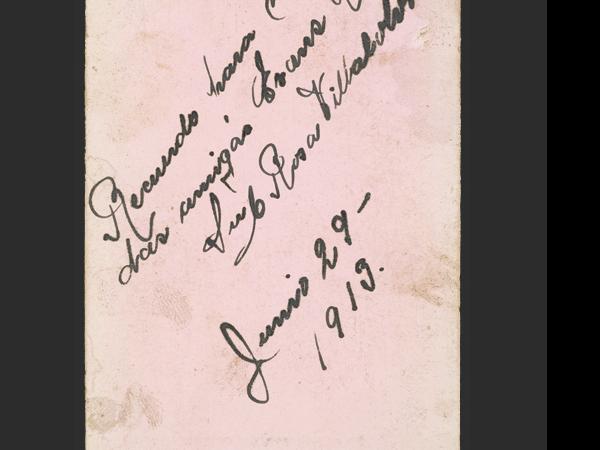 Recuerdo para
das amigas
Su Rosa Villalobos
Junio 29-
1913.